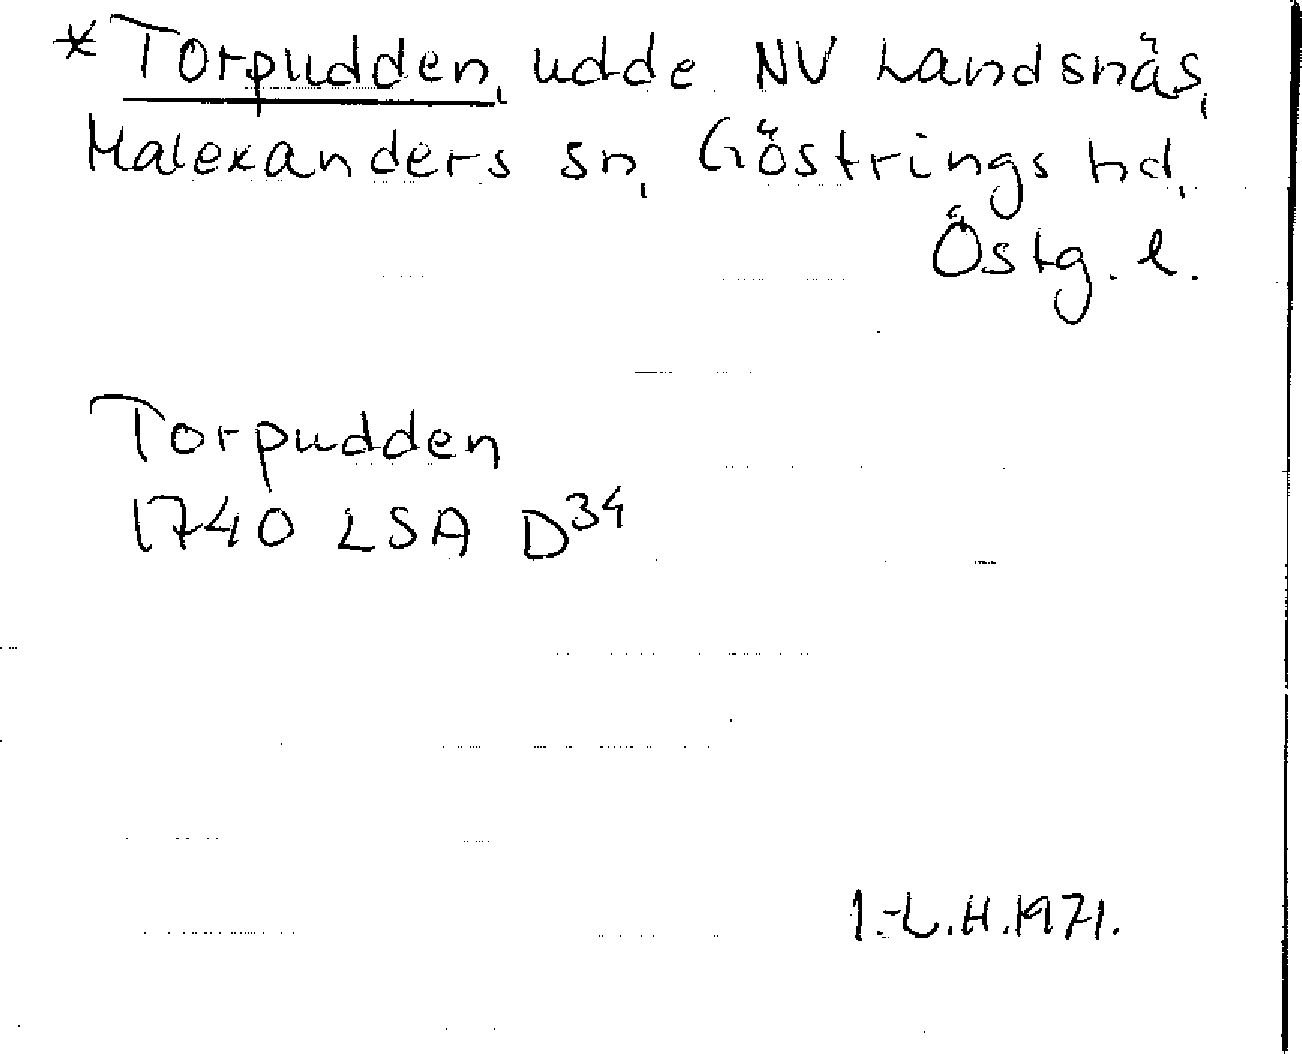 * Torpudden, udde NV Landsnäs,
Malexanders sn, Göstrings hd,
Östg. l.
Torpudden
1740 LSA D34
I.-L.H.1971.